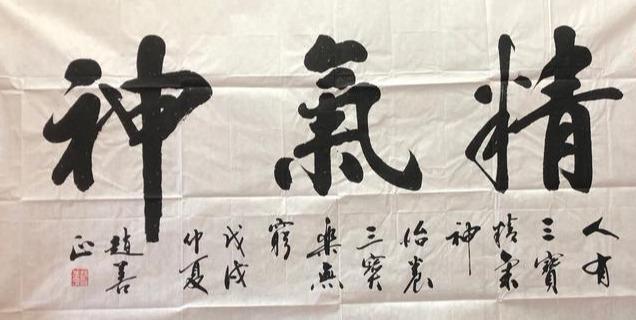 精氣神
人有
三寶
精氣
神
怡養
三寳
樂無
窮
戊戌
仲夏
趙善
正